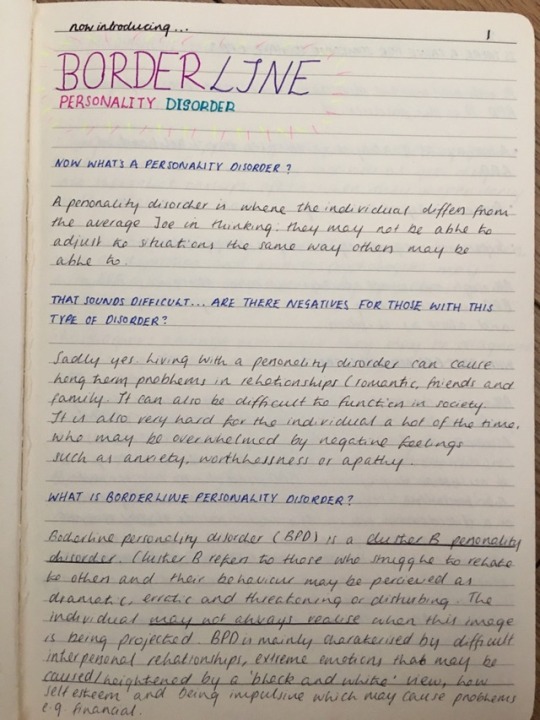 now introducing...
1
BORDERLINE
PERSONALITY DISORDER
NOW WHAT'S A PERSONALITY DISORDER?
A personality disorder is where the individual differs from
the average Joe in thinking. they may not be able to
adjust to situations the same way others may be
able to.
THAT SOUNDS DIFFICULT... ARE THERE NEGATIVES FOR THOSE WITH THIS
TYPE OF DISORDER?
Sadly yes living with a personality disorder can cause
long term problems in relationships (romantic, friends and
family. It can also be difficult to function in society.
It is also very hard for the individual a lot of the time,
who may be overwhelmed by negative feelings
such as anxiety, worthlessness or apathy.
WHAT IS BORDERLINE PERSONALITY DISORDER?
Boderline personality disorder (BPD) is a cluster B personality
disorder. Cluster B refers to those who struggle to relate
to others and their behaviour may be percieved as
dramatic, erratic and threatening or disturbing. The
individual may not always realise when this image
is being projected. BPD is mainly charaterised by difficult
interpersonal relationships, extreme emotions that may be
caused/heightened by a 'black and white' view, low
self esteem and being impulsive which may cause problems
e.g. financial.